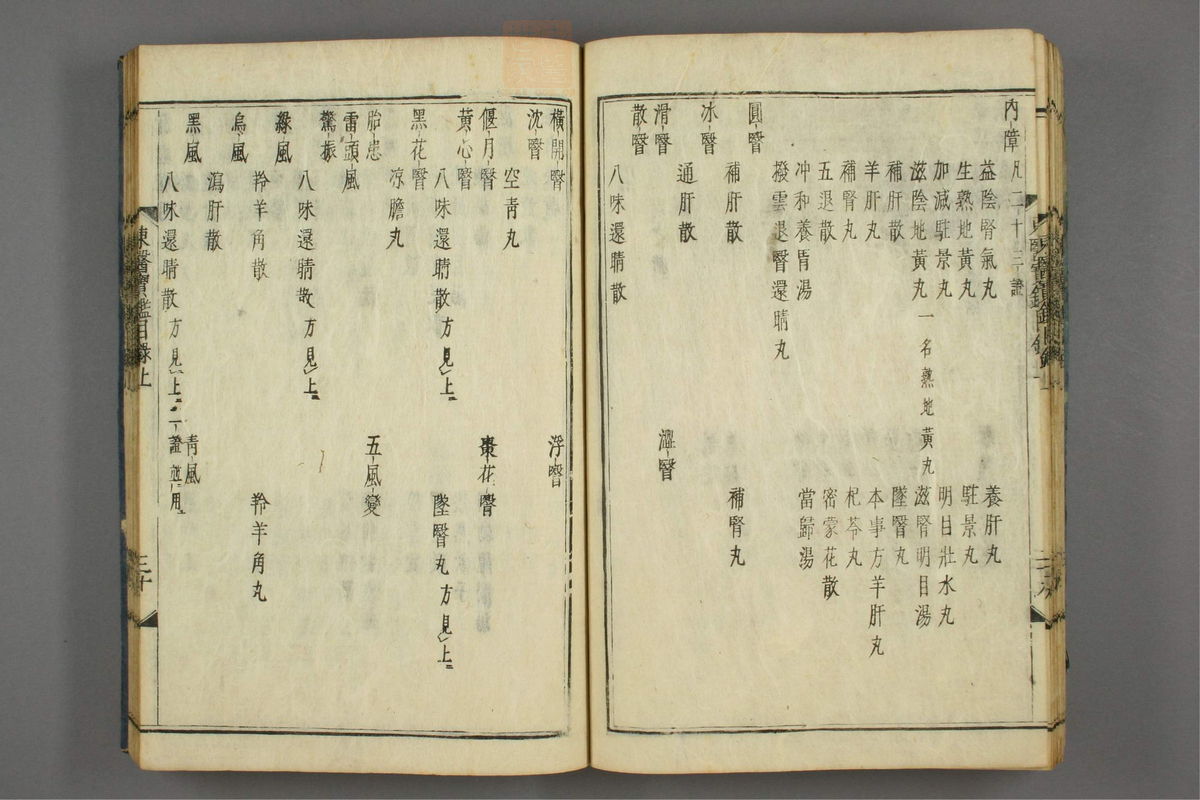 內障凡二十三證
益陰腎氣丸 養肝丸
生熟地黃丸 駐景丸
加減駐景丸 明目壯水丸
滋陰地黃丸一名熟地黃丸 滋腎明目湯
補肝散 墜瞖丸
羊肝丸 本事方羊肝丸
補腎丸 杞苓丸
五退散 密蒙花散
冲和養胃湯 當歸湯
撥雲退瞖還睛丸
圓瞖
補肝散 補腎丸
冰瞖
通肝散
滑瞖 澀瞖
散瞖
八味還睛散
橫開瞖 浮瞖
沈瞖
空青丸
偃月瞖 棗花瞖
黃心瞖
八味還睛散方見上 墜瞖丸方見上
黑花瞖
涼膽丸
胎患 五風變
雷頭風
驚振
八味還睛散方見上
綠風
羚羊角散 羚羊角丸
烏風
瀉肝散
黑風 青風
八味還睛散方見上二證並用
東醫寶鑑目錄上 三十